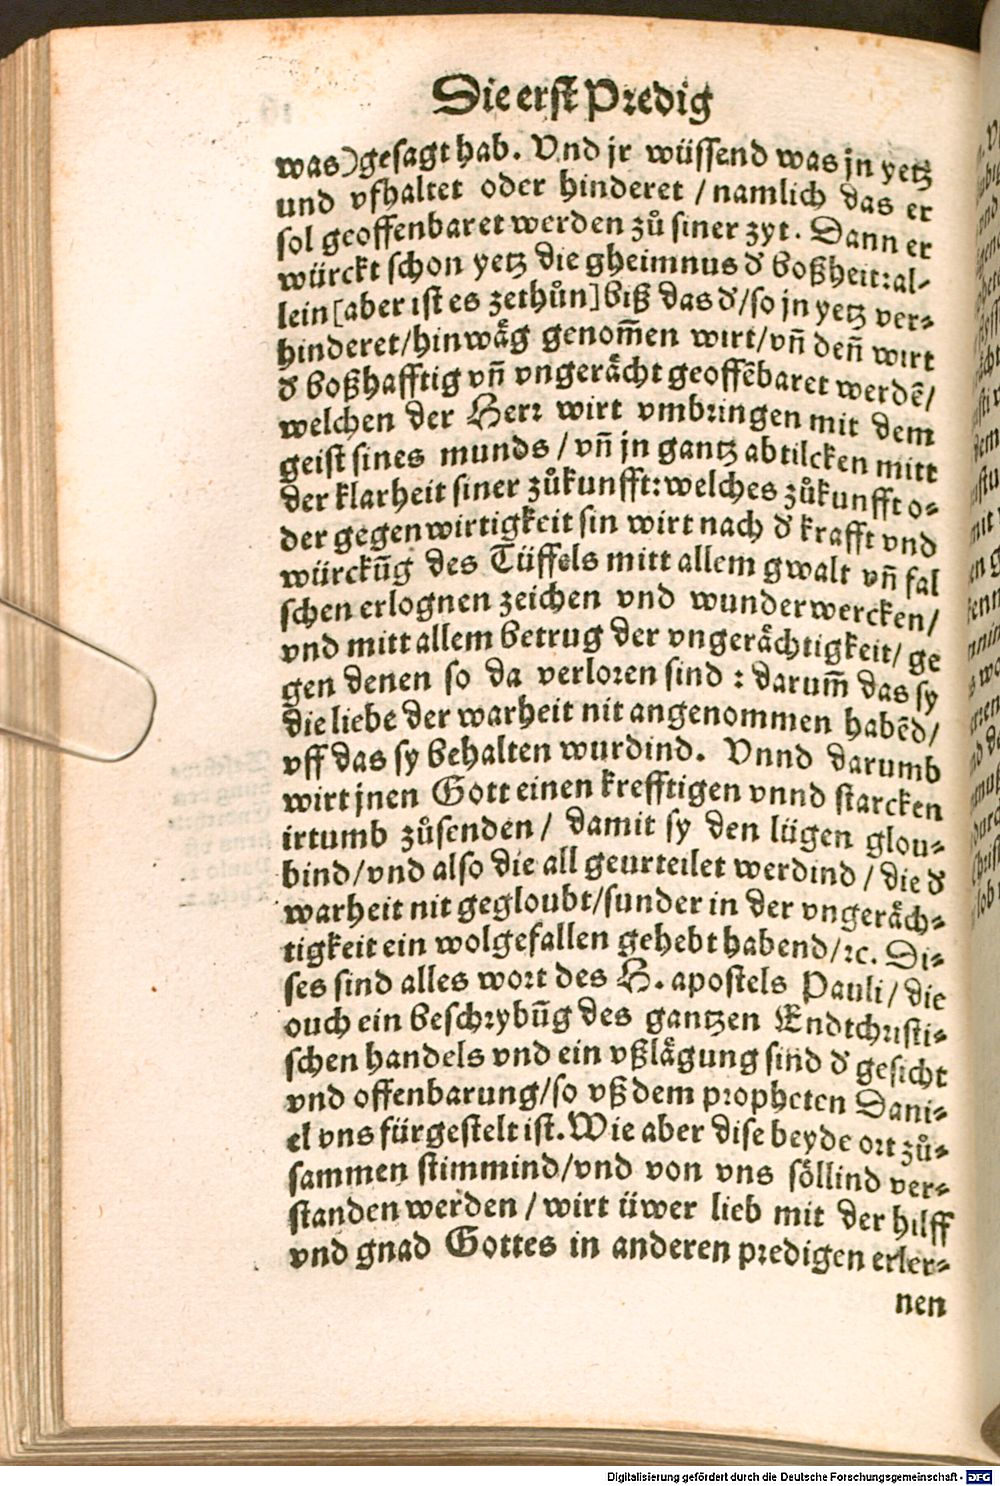 Die erst Predig
was)gesagt hab. Vnd jr wüssend was jn yetz
und vfhaltet oder hinderet / namlich das er
sol geoffenbaret werden zů siner zyt. Dann er
würckt schon yetz die gheimnus d' boßheit:al-
lein[aber ist es zethůn]biß das d'/so jn yetz ver-
hinderet/hinwåg genom̃en wirt/vñ deñ wirt
d' boßhafftig vñ vngeråcht geoffẽbaret werdẽ/
welchen der Herr wirt vmbringen mit dem
geist sines munds / vñ jn gantz abtilcken mitt
der klarheit siner zůkunfft:welches zůkunfft o-
der gegenwirtigkeit sin wirt nach d' krafft vnd
würckũg des Tüffels mitt allem gwalt vñ fal
schen erlognen zeichen vnd wunderwercken/
vnd mitt allem betrug der vngeråchtigkeit/ ge
gen denen so da verloren sind : darum̃ das sy
die liebe der warheit nit angenommen habẽd/
vff das sy behalten wurdind. Vnnd darumb
wirt jnen Gott einen krefftigen vnnd starcken
irtumb zůsenden / damit sy den lügen glou-
bind/vnd also die all geurteilet werdind / die d'
warheit nit gegloubt/sunder in der vngeråch-
tigkeit ein wolgefallen gehebt habend/ꝛc. Di-
ses sind alles wort des H. apostels Pauli / die
ouch ein beschrybũg des gantzen Endtchristi-
schen handels vnd ein vßlågung sind d' gesicht
vnd offenbarung/so vß dem propheten Dani-
el vns fürgestelt ist. Wie aber dise beyde ort zů-
sammen stimmind/vnd von vns söllind ver-
standen werden / wirt üwer lieb mit der hilff
vnd gnad Gottes in anderen predigen erler-
nen
Digitalisierung gefördert durch die Deutsche Forschungsgemeinschaft - DFG